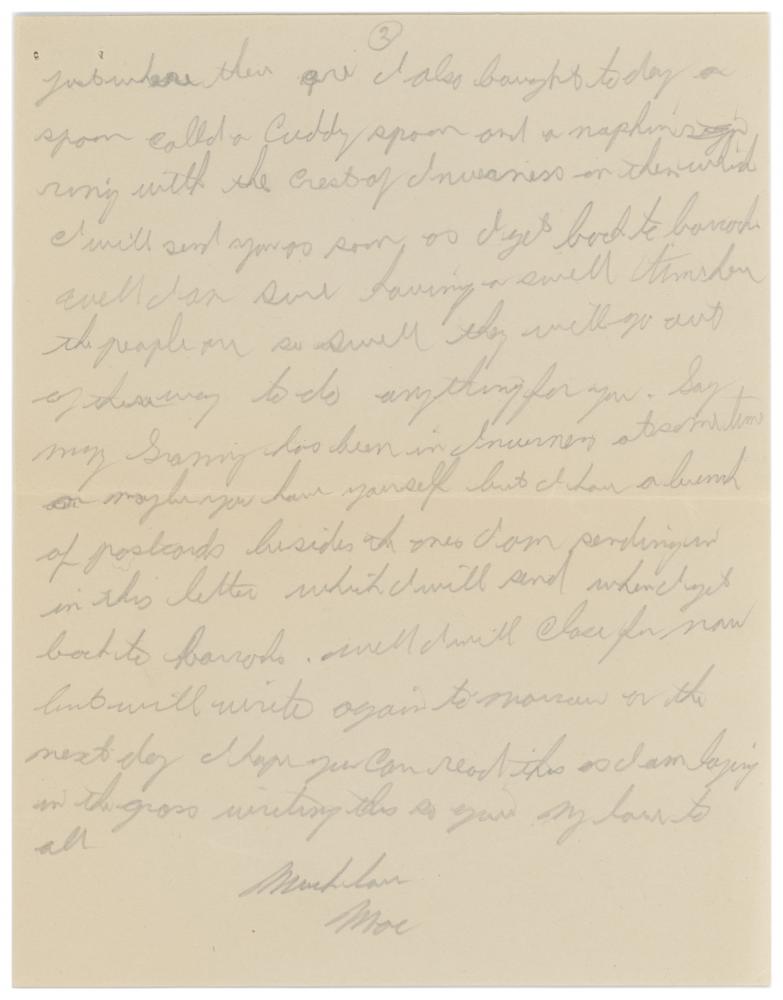 3
just where their are I also bought to day a
spoon called a Cuddy spoon and a naphin
ring with the Crest of Inverness on them which
I will send you as soon as I get back to barrocks
well I am sure having a swell time here
the people are so swell they will go out
of their way to do anything for you. Say
may Granny has been in Inverness at some time
or maybe you have yourself but I have a bunch
of postcards besides the ones I am sending in
in this letter which I will send when I get
back to barrocks. well I will close for now
but will write again to morrow or the
next day I hope you can read this as I am laying
in the grass writing this so give my love to
all
Much love
Moe